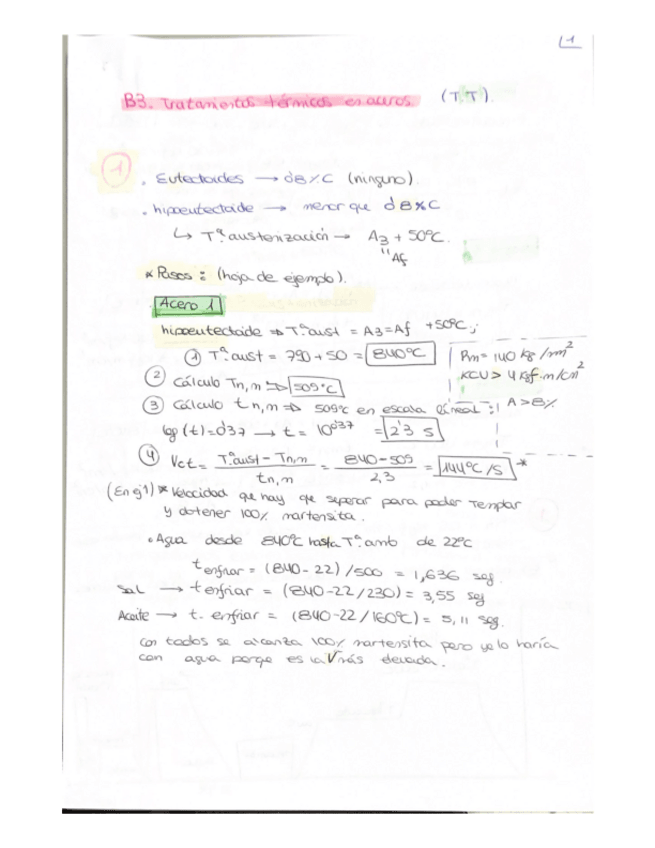 1
B3. Tratamientos térmicos en aceros. (T.T).
1
. Eutectoides → d8%C (ninguno)
. hipoeutectoide → menor que d8%C
↳ Tª austenización → A3 + 50ºC.
"Af
* Pasos: (hoja de ejemplo).
Acero 1
hipoeutectoide ⇒ Tª aust = A3=Af +50ºC;
① Tª aust = 790 + 50 = 840ºC
Rm= 140 kg/mm²
KCU > 4 kgf·m/cm²
A > 8%
② Cálculo Tn,m ⇒ 509ºC
③ Cálculo tn,m ⇒ 509ºC en escala lineal:
log(t)=d37 → t = 10^d37 = 2'3 s
④ Vct = Tª aust - Tn,m / tn,m = 840-509 / 2,3 = 144ºC/s *
(En ej 1) * Velocidad que hay que superar para poder templar
y obtener 100% martensita.
• Agua desde 840ºC hasta Tª amb de 22ºC
t enfriar = (840-22)/500 = 1,636 seg.
Sal → t enfriar = (840-22/230) = 3,55 seg
Aceite → t. enfriar = (840-22/160ºC) = 5,11 seg.
con todos se alcanza 100% martensita pero yo lo haría
con agua porque es la V más elevada.